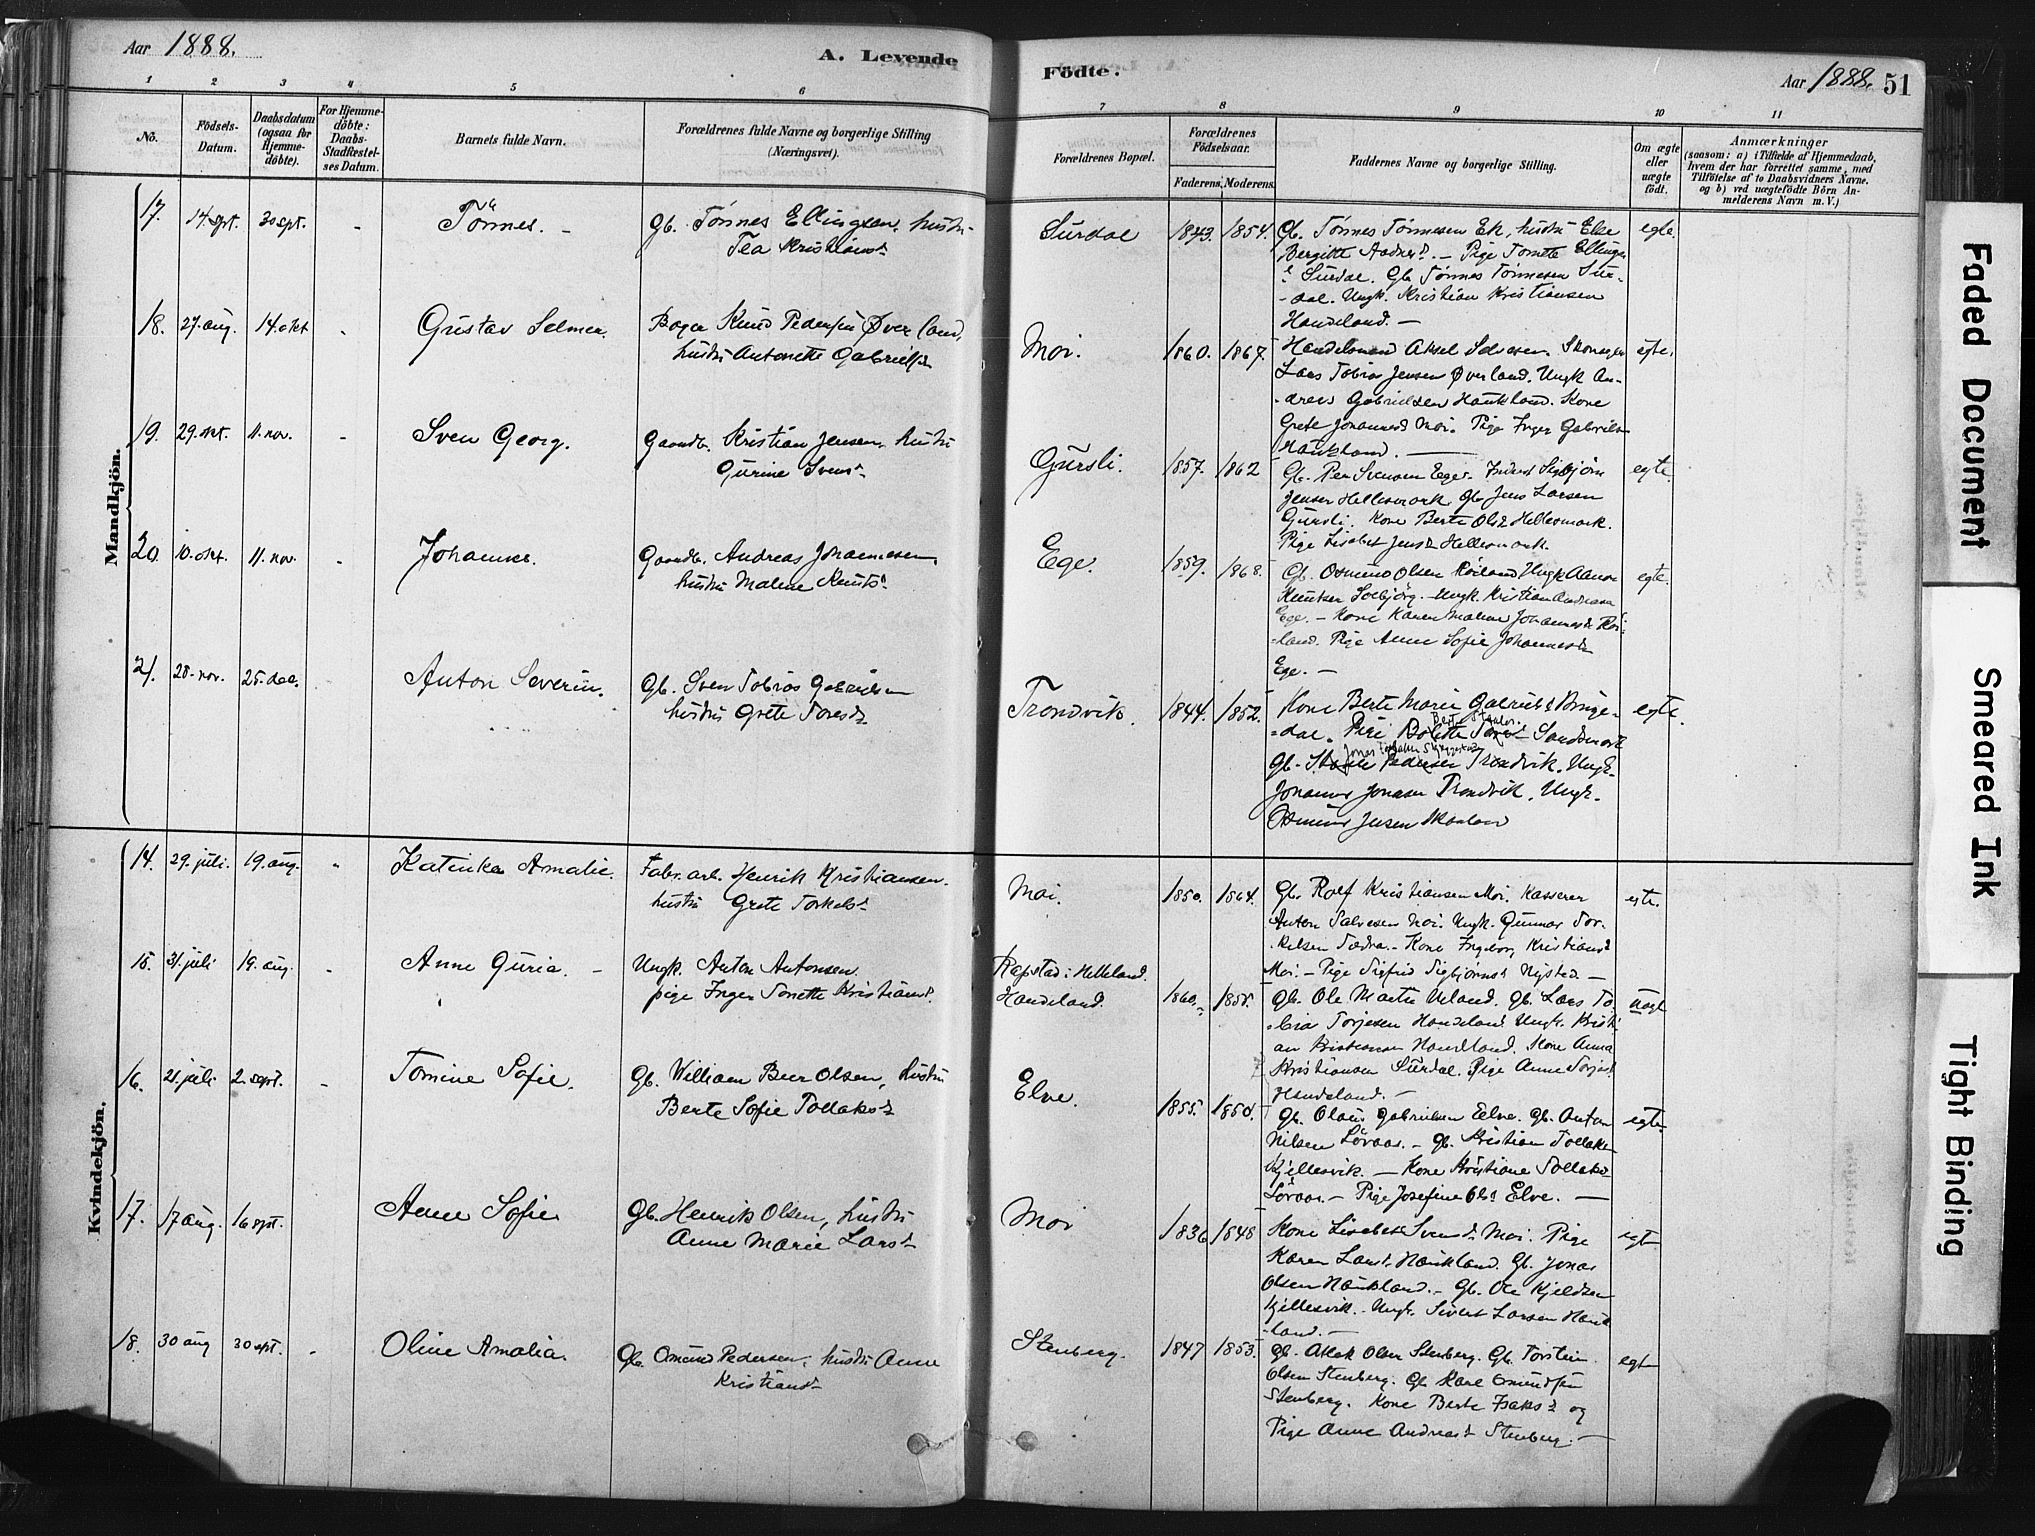 Aar 1888.
A. Levende
Födte.
Aar 1888. 51
1 2 3 4 5 6 7 8 9 10 11
No.
Födsels-Datum.
Daabsdatum (ogsaa for Hjemme-döbte).
For Hjemme-döbte: Daabs-Stadfæstel-ses Datum.
Barnets fulde Navn.
Forældrenes fulde Navne og borgerlige Stilling
(Næringsvei).
Forældrenes Bopæl.
Forældrenes Födselsaar.
Faderens. Moderens.
Faddernes Navne og borgerlige Stilling.
Om ægte eller uægte födt.
Anmærkninger
(saasom: a) i Tilfælde af Hjemmedaab,
hvem der har forrettet samme, med
Tilföielse af to Daabsvidners Navne.
og b) ved uægtefödte Börn An-
melderens Navn m. V.)
Mandkjön.
17. 14. spt. 30 spt. - Tönnes. -
Gb. Tönnes Ellingsen, hustru
Tea Kristiansd.
Surdal 1843. 1854.
Gb. Tönnes Tönnesen Ek, hustru Else
Bergitte Aadnesd. - Pige Tomette Ellings-
d Surdal. Gb. Tönnes Tönnesen Sur-
dal. Ungk. Kristian Kristiansen
Handeland. -
egte.
18. 27. aug. 14. okt - Gustav Selmer.
Bager Knud Pedersen Överland,
hustru Antonette Gabrielsd.
Moi. 1860. 1867.
Handelsmand Aksel Salvesen.
Lars Tobias Jensen Överland. Ungk. An-
dreas Gabrielsen Haukland. Kone
Grete Johannesd Moi. Pige Inger Gabriels
Haukland. -
egte.
19. 29. okt. 11. nov. - Sven Georg.
Gaardb. Kristian Jensen, hustru
Gurine Svensd.
Gursli. 1857. 1862
Gb. Per Svensen Ege. Sigbjörn
Jensen Hellesmark. Gb. Jens Larsen
Gursli. Kone Berte Olsd Hellesmark.
Pige Lisabet Jensd Hellesmark.
egte.
20. 10. okt. 11. nov. - Johannes.
Gaardb. Andreas Johannesen,
hustru Malene Knutsd.
Ege. 1859. 1868.
Gb. Osmund Olsen Röiland Ungk. Aanon
Knutsen Solbjörg. - Ungk. Kristian Andreasen
Ege. - Kone Karen Malene Johannesd. Röi-
land. Pige Anne Sofie Johannesd.
Ege. -
egte.
21. 28. nov. 25. dec. Anton Severin.
Gb. Sven Tobias Gabrielsen
hustru Grete Toresd.
Trondvik. 1844. 1852.
Kone Berte Marie Gabrielsd Birge-
dal. Pige Sandsmark
Gb. Pedersen Trondvik. Ungk.
Johannes Jonasen Trondvik. Ungk.
Osmund Jensen Skaaland
egte.
Kvindekjön.
14. 29. juli. 19. aug. - Katinka Amalie.
Fabr. arb. Henrik Kristiansen.
hustru Grete Torkelsd.
Moi. 1850. 1864.
Gb. Rolf Kristiansen Moi. Kasserer
Anton Salvesen Moi. Ungk. Gunnar Tor-
kelsen Tedra. - Kone Ingebor, Kristiansd
Moi. - Pige Sigfrid Sigbjörnsd Nysted -
egte.
15. 31. juli 19. aug. - Anne Guria. -
Ungk. Anton Antonsen
pige Inger Tonette Kristiansd.
Rapstad i Helleland.
Handeland. 1860. 1858.
Gb. Ole Martin Urland. Gb. Lars To-
bia Torjesen Handeland Ungk. Kristi-
an Kristiansen Handland. Kone Anna
Kristiansen Surdal. Pige Anne Torjesd
Handeland. -
uegt
16. 21. juli 2. sept. - Tomine Sofie.
Gb. William Beer Olsen, hustru
Berte Sofie Tollaksd.
Elve. 1855. 1850.
Gb. Olaus Gabrielsen Eelve. Gb. Anton
Nilsen Löraas. - Gb. Kristian Tollaks
Kjellesvik. - Kone Kristiane Tollaksd
Löraas. - Pige Josefine Olsd Elve. -
egte
17. 17 aug. 16 spt. Anne Sofie
Gb. Henrik Olsen, hustru
Anne Marie Larsd.
Moi 1836 1848
Kone Lisabet Svensd. Moi. Pige
Karen Larsd. Haukland. Gb. Jonas
Olsen Haukland. - Gb. Ole Kjeldsen
Kjellesvik. - Ungk. Sivert Larsen Hauk
land. -
egt
18. 30 aug 30 spt. - Oline Amalia.
Gb. Omund Pedersen, hustru Anne
Kristiansd.
Stenberg. 1847 1853.
Gb. Atlak Olsen Stenberg. Gb. Torstein
Olsen Stenberg. Gb. Karl Omundsen
Stenberg. Kone Berte Isaksd og
Pige Anne Andreasd Stenberg. -
egte
Faded Document
Smeared Ink
Tight Binding